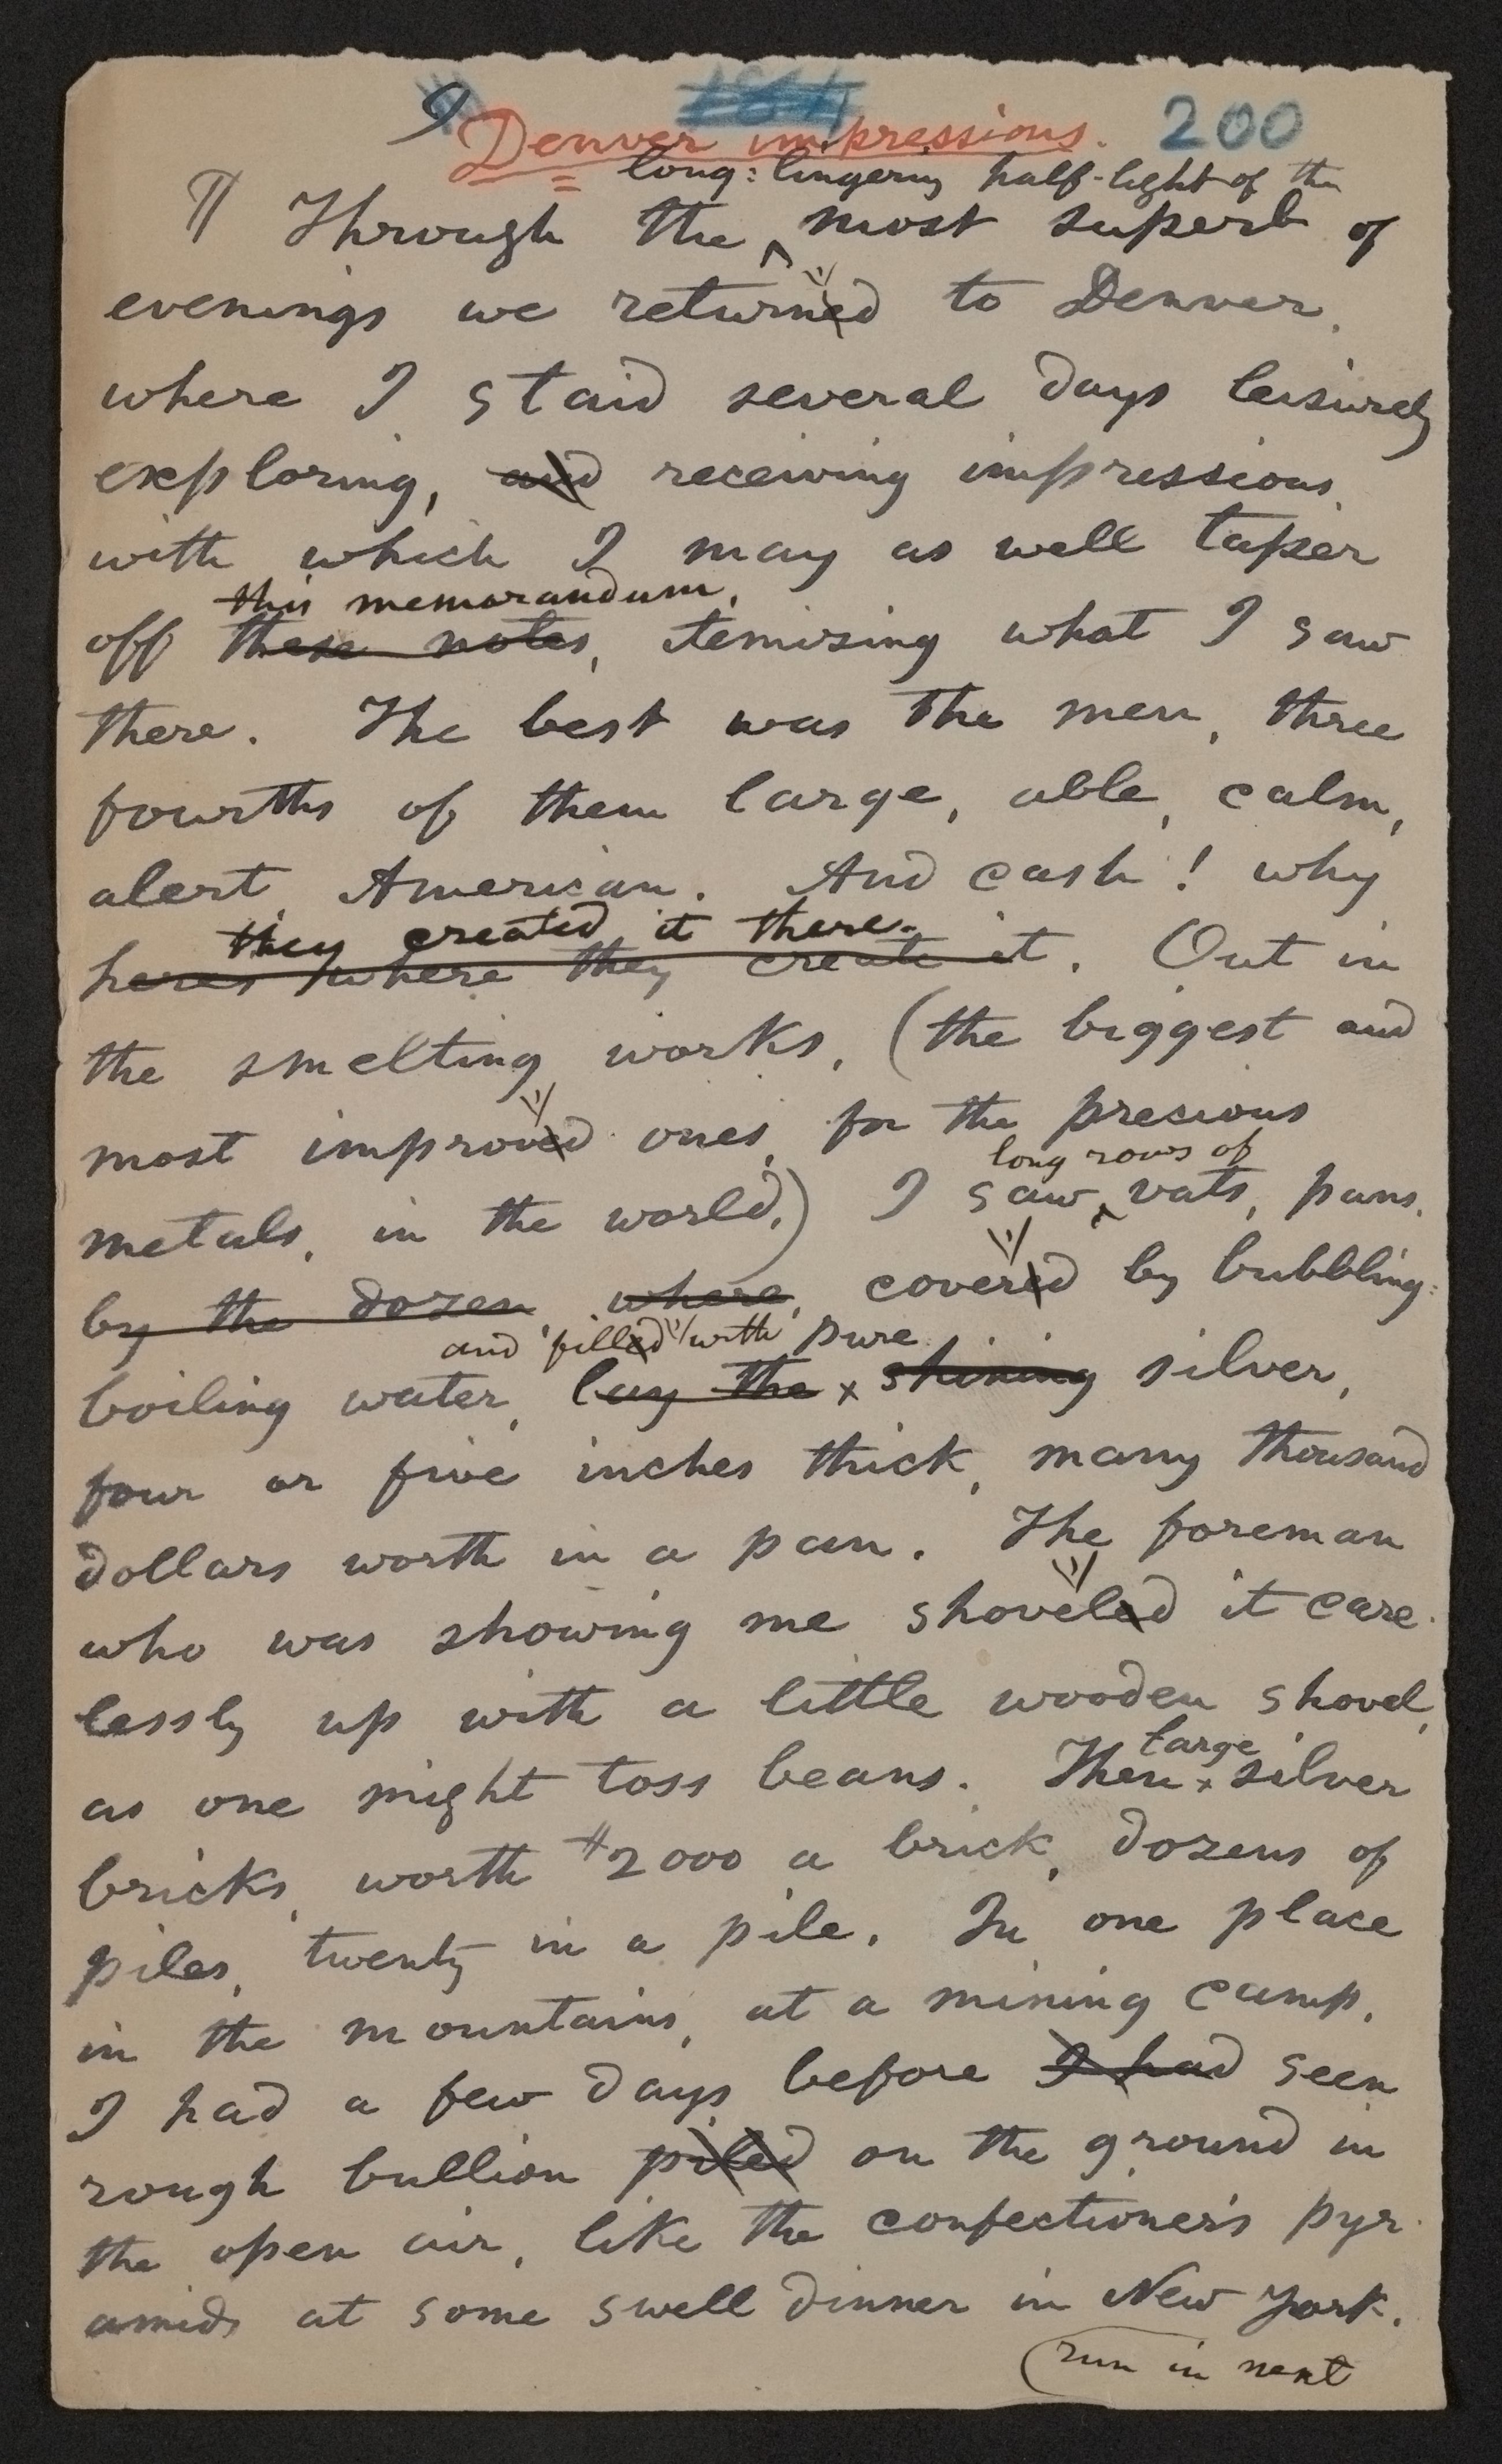 9 184 200
Denver impressions.
long-lingering half-light of the
¶ Through the ^ most superb of
evenings we return'd to Denver,
where I staid several days leisurely
exploring, and receiving impressions,
with which I may as well taper
this memorandum,
off these notes, itemizing what I saw
there. The best was the men, three
fourths of them large, able, calm,
alert, American. And cash! why
they created it there.
heres where they create it. Out in
the smelting works, (the biggest and
most improv'd ones, for the precious
long rows of
metals, in the world,) I saw ^ vats, pans,
by the dozen where, cover'd by bubbling-
and fill'd with pure
boiling water, lay the x shining silver,
four or five inches thick, many thousand
dollars worth in a pan. The foreman
who was showing me shovel'd it care-
lessly up with a little wooden shovel,
large
as one might toss beans. Then x silver
bricks, worth $2000 a brick, dozens of
piles, twenty in a pile. In one place
in the mountains, at a mining camp,
I had a few days before I had seen
rough bullion piled on the ground in
the open air, like the confectioner's pyr-
amids at some swell dinner in New York.
(run in next